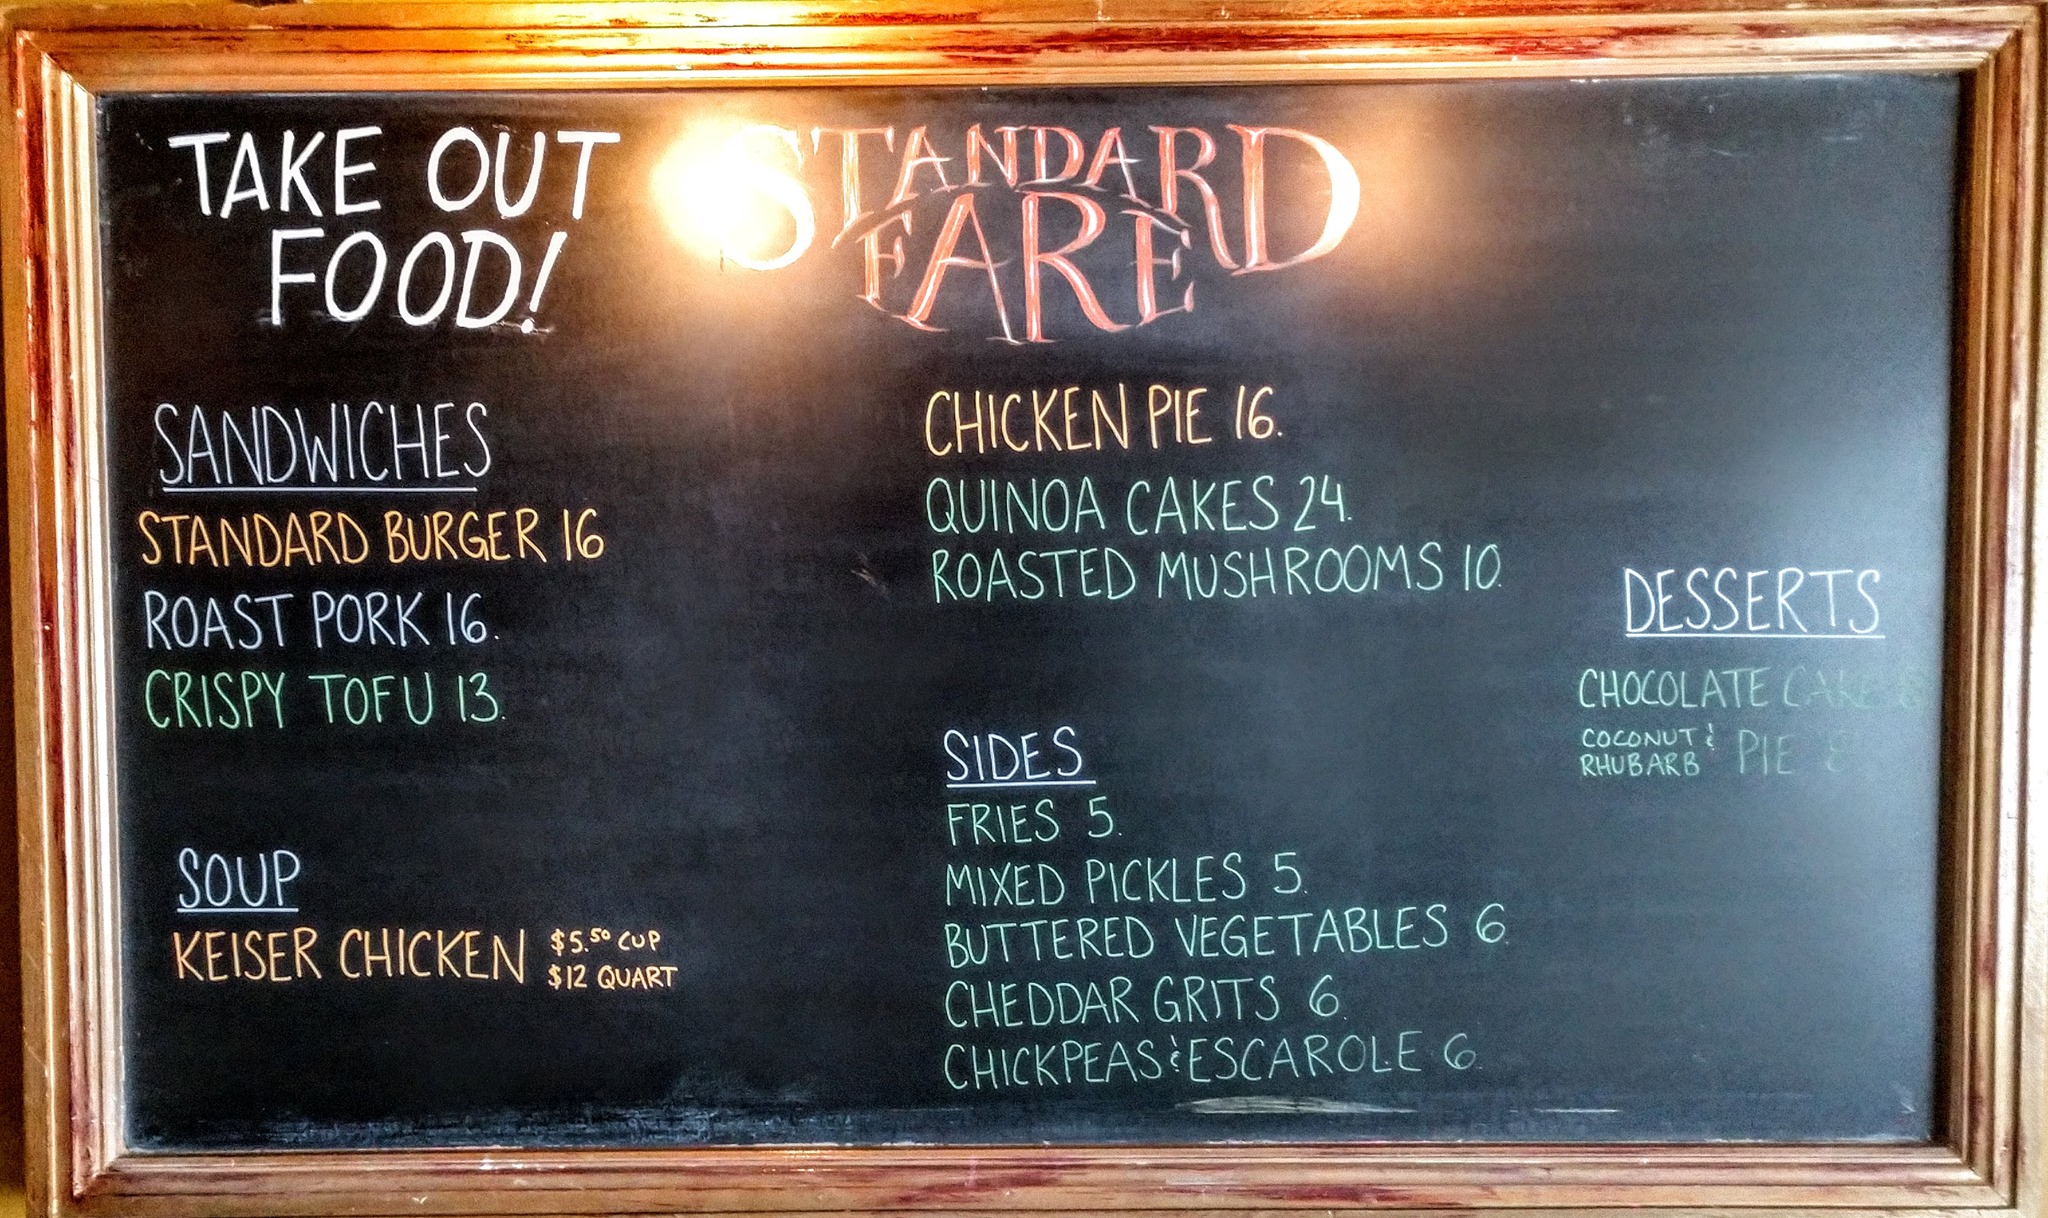 TAKE OUT
FOOD!
STANDARD
FARE
SANDWICHES
STANDARD BURGER 16
ROAST PORK 16.
CRISPY TOFU 13.
SOUP
KEISER CHICKEN $5.50 CUP
$12 QUART
CHICKEN PIE 16.
QUINOA CAKES 24.
ROASTED MUSHROOMS 10.
SIDES
FRIES 5.
MIXED PICKLES 5.
BUTTERED VEGETABLES 6.
CHEDDAR GRITS 6.
CHICKPEAS & ESCAROLE 6.
DESSERTS
CHOCOLATE CAKE
COCONUT &
RHUBARB PIE 8